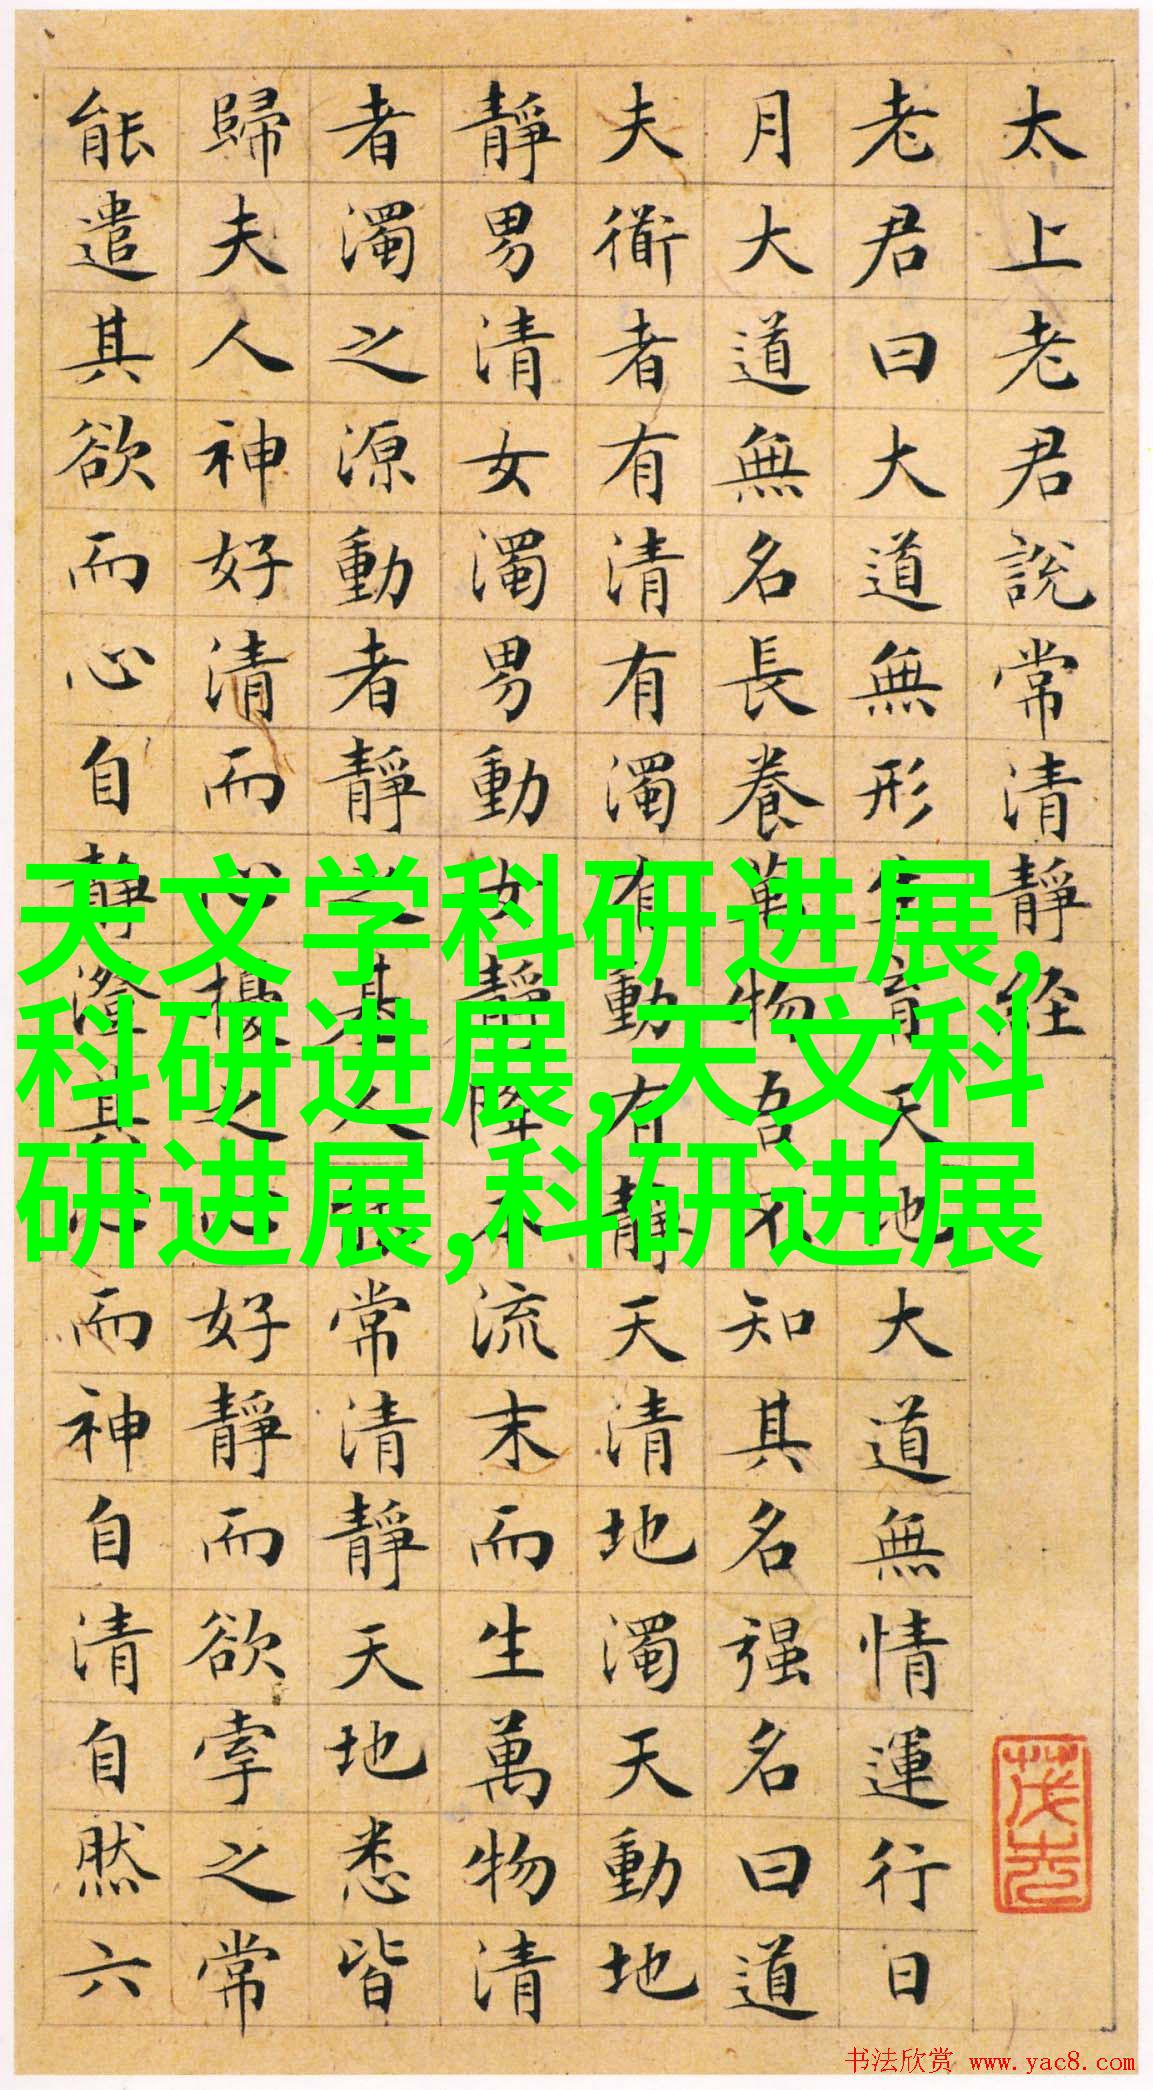 太上老君說常清靜経
老君曰大道無形生育天地大道無情運行日
月大道無名長養萬物吾不知其名强名曰道
夫衜者有清有濁有動有靜天清地濁天動地
靜男清女濁男動女靜降本流末而生萬物清
者濁之源動者靜之基人能常清靜天地悉皆
歸夫人神好清而心擾之心好靜而欲牽之常
能遣其欲而心自靜澄其心而神自清自然六
天文学科研进展,
科研进展,天文科
研进展,科研进展
书法欣赏 www.yac8.com